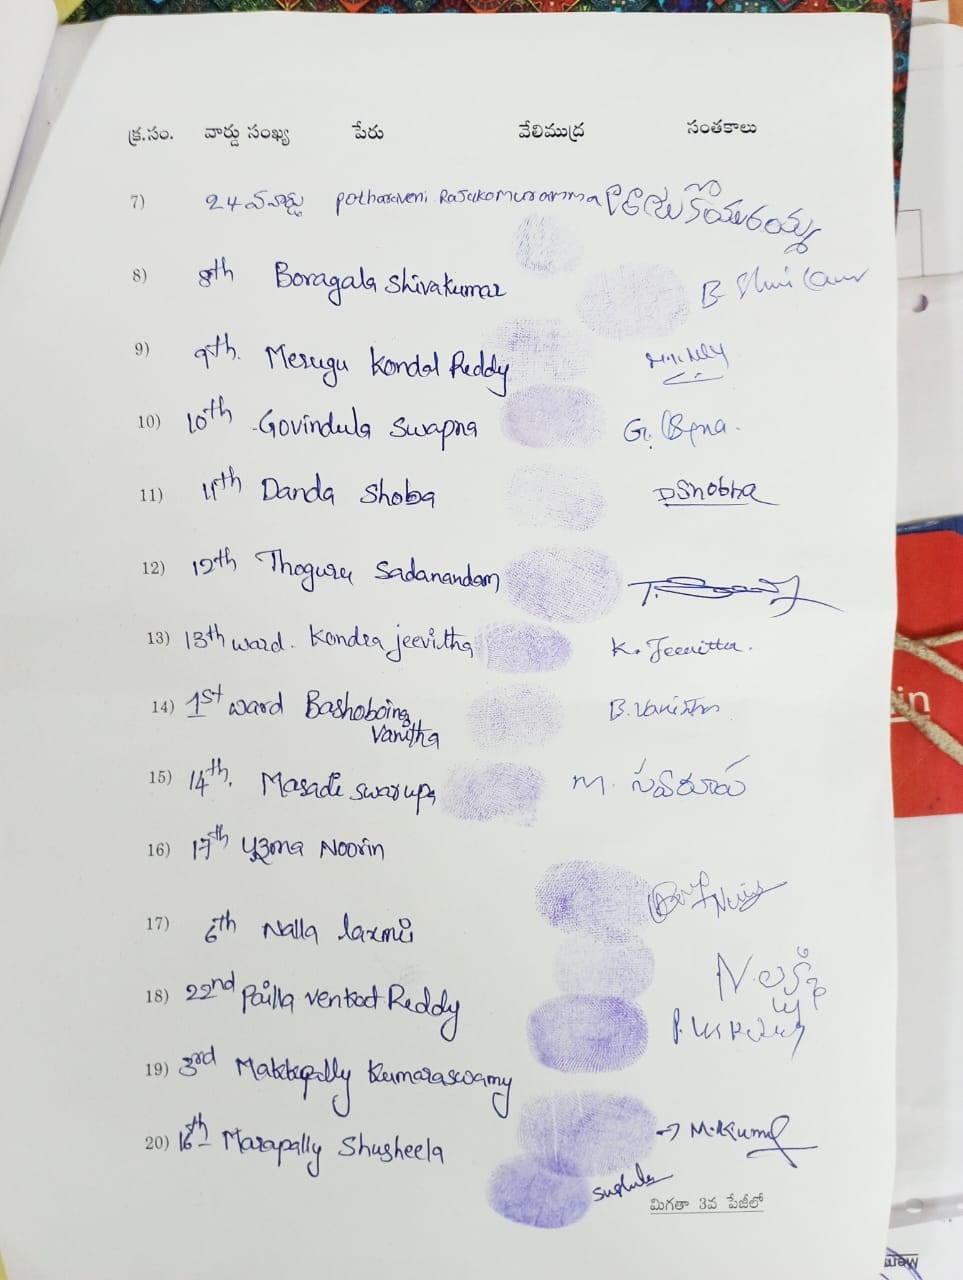 క్ర.సం. వార్డు సంఖ్య పేరు వేలిముద్ర సంతకాలు
7) 24వ వార్డు potharaveni Rajukomuramma
8) 8th Boragala Shivakumar
9) 9th. Merugu Kondal Reddy
10) 10th Govindula Swapna
11) 11th Danda Shoba DShobha
12) 12th Thoguru Sadanandam
13) 13th ward. Kondra jeevitha K. Jeevitha.
14) 1st ward Bashoboina B. Vanitha
Vanitha
15) 14th. Masadi Swarupa M. స్వరూప
16) 17th Noorin
17) 6th Nalla laxmi
18) 22nd Pailla Venkat Reddy
19) 3rd Makkapally Kumaraswamy
→ M.Kumar
20) 16th Marapally Shusheela
మిగతా 3వ పేజీలో
in